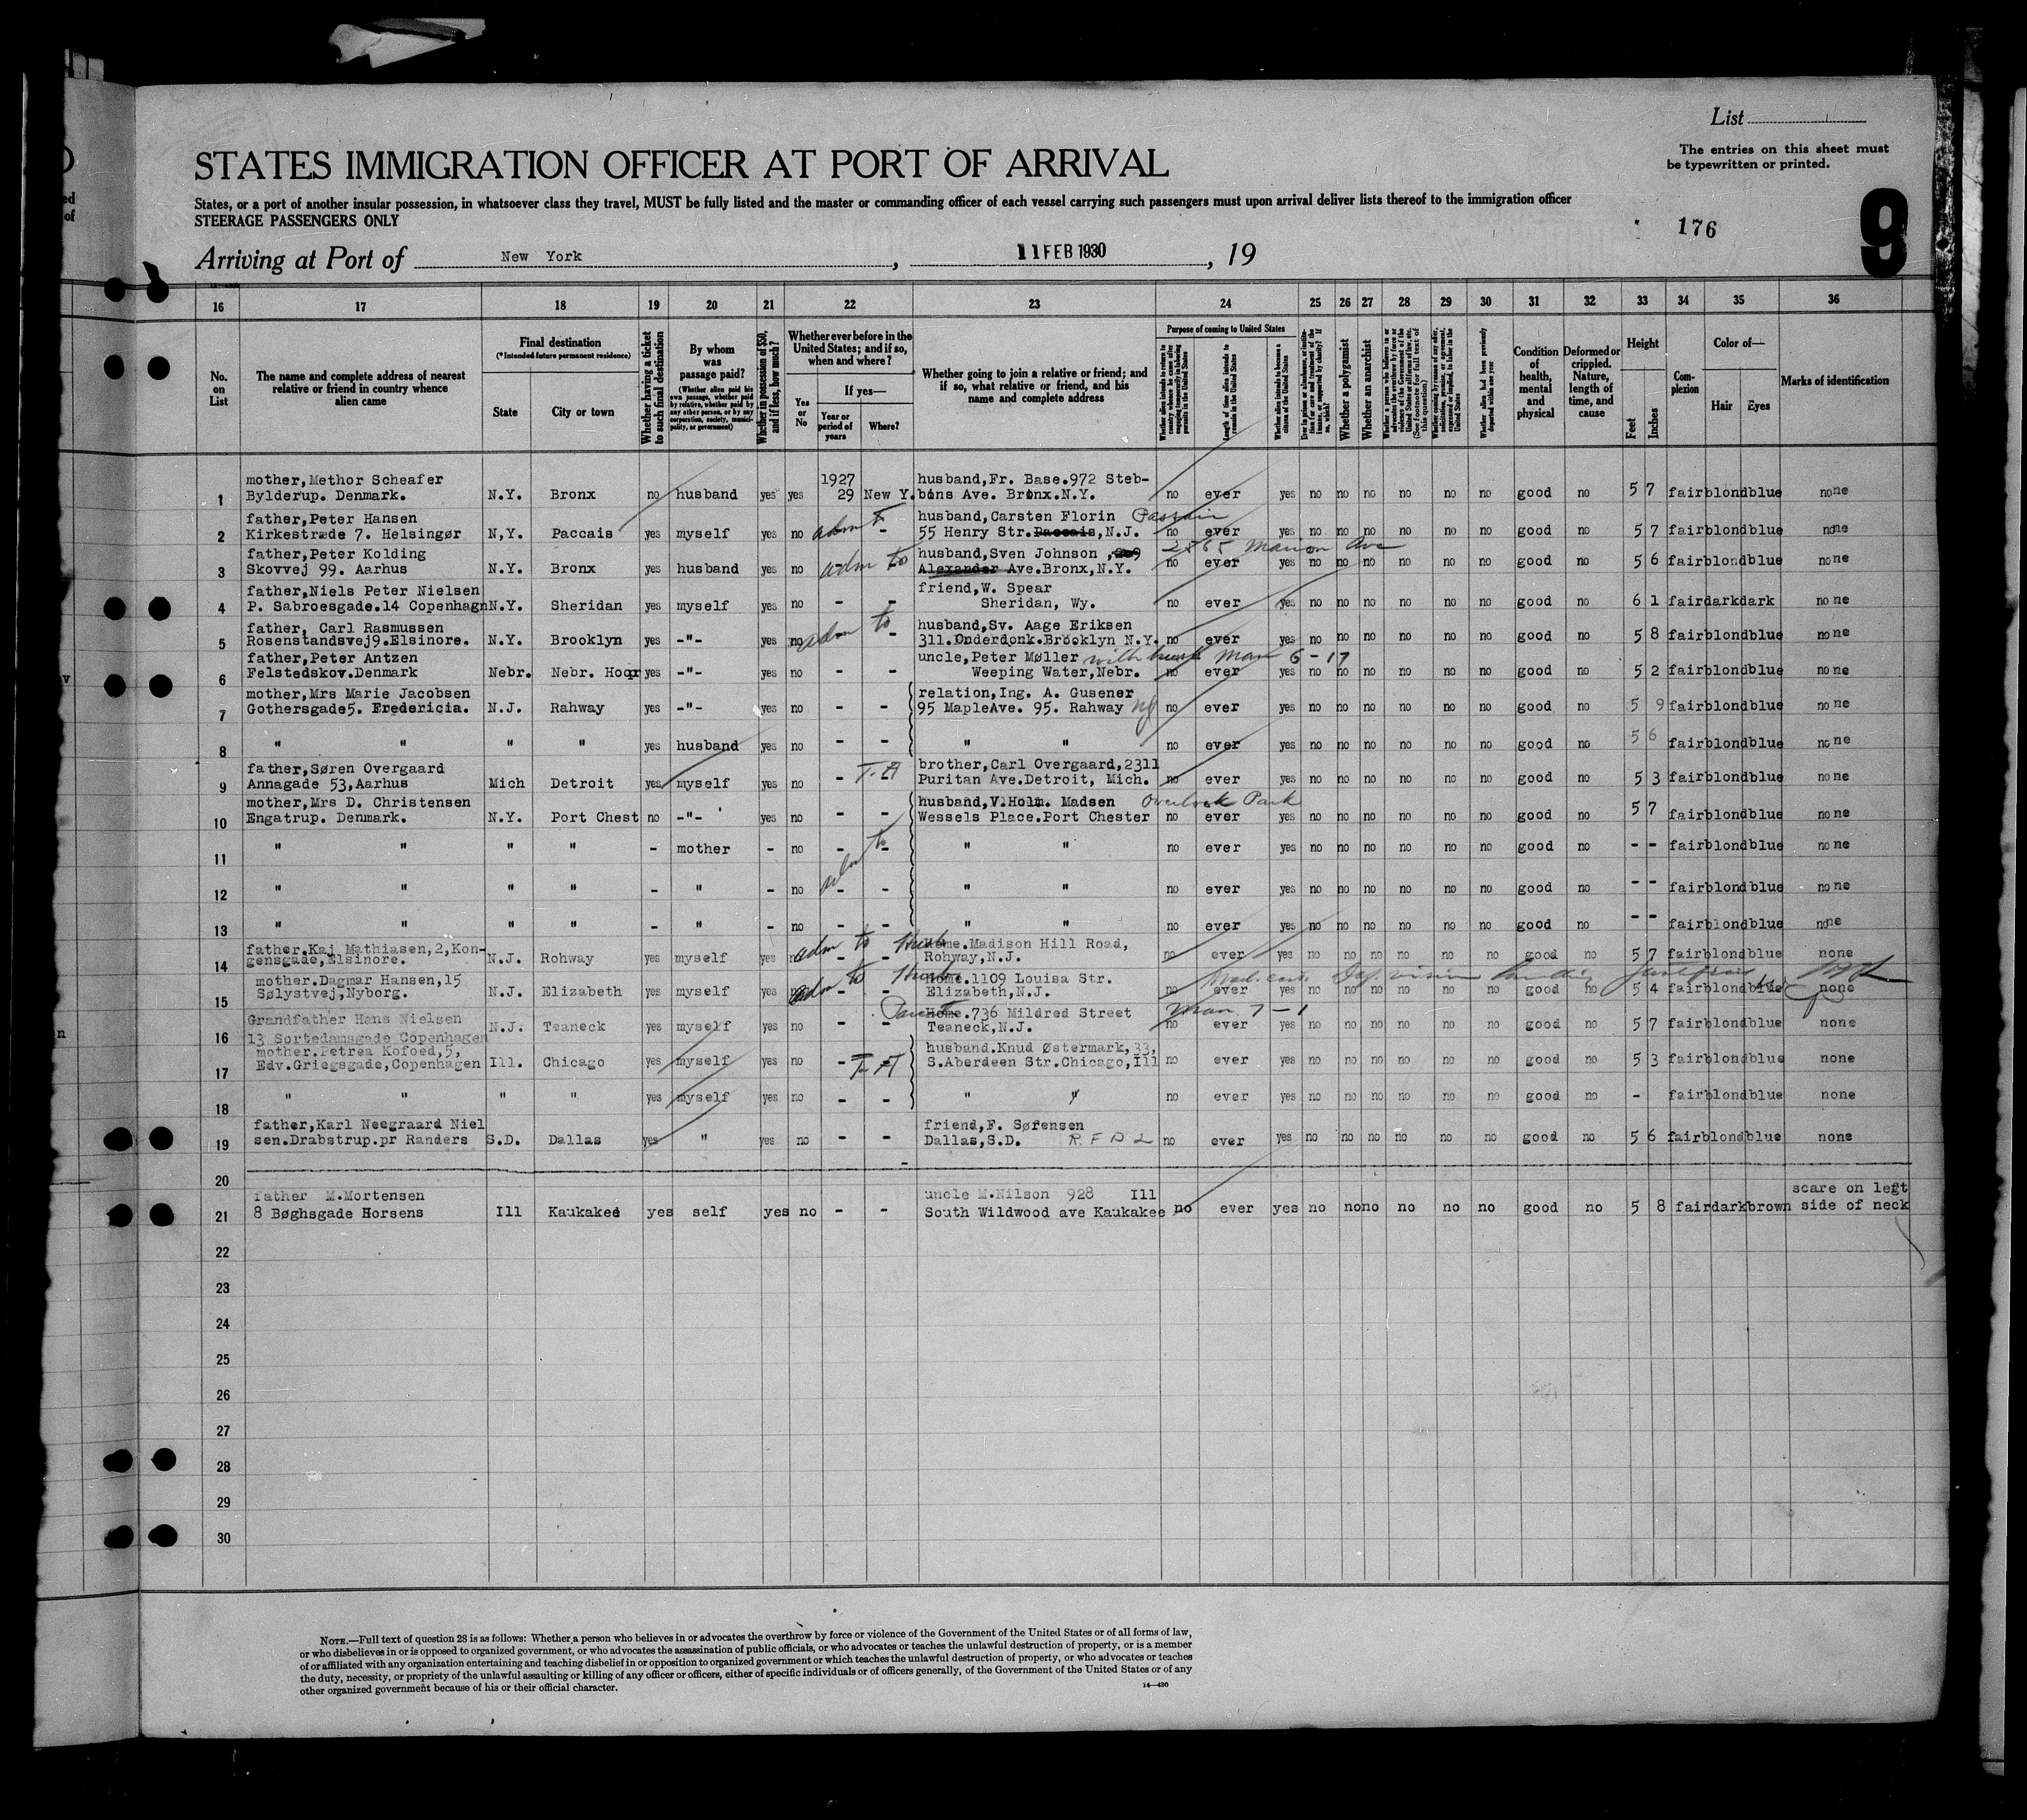 List
The entries on this sheet must
be typewritten or printed.
STATES IMMIGRATION OFFICER AT PORT OF ARRIVAL
States, or a port of another insular possession, in whatsoever class they travel, MUST be fully listed and the master or commanding officer of each vessel carrying such passengers must upon arrival deliver lists thereof to the immigration officer
STEERAGE PASSENGERS ONLY
176
9
Arriving at Port of New York, 11 FEB 1930, 19
16 17 18 19 20 21 22 23 24 25 26 27 28 29 30 31 32 33 34 35 36
No. on List
The name and complete address of nearest relative or friend in country whence alien came
Final destination
(*Intended future permanent residence)
State
City or town
Whether having a ticket to such final destination
By whom was passage paid?
(Whether alien paid his own passage, whether paid by relative, whether paid by any other person, or by any corporation, society, municipality, or government)
Whether in possession of $50, and if less, how much?
Whether ever before in the United States; and if so, when and where?
Yes or No
If yes—
Year or period of years
Where?
Whether going to join a relative or friend; and if so, what relative or friend, and his name and complete address
Purpose of coming to United States
Whether alien intends to return to country whence he came after engaging temporarily in laboring pursuits in the United States
Length of time alien intends to remain in the United States
Whether alien intends to become a citizen of the United States
Whether a polygamist
Whether an anarchist
Condition of health, mental and physical
Deformed or crippled. Nature, length of time, and cause
Height
Feet
Inches
Complexion
Color of—
Hair
Eyes
Marks of identification
mother, Methor Scheafer 1927 husband, Fr. Base. 972 Steb-
1 Bylderup. Denmark. N.Y. Bronx no husband yes yes 29 New Y. bins Ave. Bronx. N.Y. no ever yes no no no no no no good no 5 7 fair blond blue none
father, Peter Hansen husband, Carsten Florin Passaic
2 Kirkestræde 7. Helsingør N,Y. Paccais yes myself yes no adm to - 55 Henry Str. Paccais, N.J. no ever yes no no no no no no good no 5 7 fair blond blue none
father, Peter Kolding husband, Sven Johnson, 209 2565 Marion Ave
3 Skovvej 99. Aarhus N.Y. Bronx yes husband yes no adm to Alexander Ave. Bronx, N.Y. no ever yes no no no no no no good no 5 6 fair blond blue none
father, Niels Peter Nielsen friend, W. Spear
4 P. Sabroesgade. 14 Copenhagn N.Y. Sheridan yes myself yes no - - Sheridan, Wy. no ever yes no no no no no no good no 6 1 fair dark dark none
father, Carl Rasmussen husband, Sv. Aage Eriksen
5 Rosenstandsvej 9. Elsinore. N.Y. Brooklyn yes -"- yes no adm to - 311. Onderdonk. Brooklyn N.Y. no ever yes no no no no no no good no 5 8 fair blond blue none
father, Peter Antzen uncle, Peter Møller
6 Felstedskov. Denmark Nebr. Nebr. Hoop yes -"- yes no - - Weeping Water, Nebr. no ever yes no no no no no no good no 5 2 fair blond blue none
mother, Mrs Marie Jacobsen relation, Ing. A. Gusener
7 Gothersgade 5. Fredericia. N.J. Rahway yes -"- yes no - - 95 Maple Ave. 95. Rahway NJ no ever yes no no no no no no good no 5 9 fair blond blue none
8 " " " " yes husband yes no - - " " no ever yes no no no no no no good no 5 6 fair blond blue none
father, Søren Overgaard brother, Carl Overgaard, 2311
9 Annagade 53, Aarhus Mich Detroit yes myself yes no - Puritan Ave. Detroit, Mich. no ever yes no no no no no no good no 5 3 fair blond blue none
mother, Mrs D. Christensen husband, V. Holm. Madsen Overlook Park
10 Engatrup. Denmark. N.Y. Port Chest no -"- yes no - - Wessels Place. Port Chester no ever yes no no no no no no good no 5 7 fair blond blue none
11 " " " " - mother - no - - " " no ever yes no no no no no no good no - - fair blond blue none
12 " " " " - " - no - - " " no ever yes no no no no no no good no - - fair blond blue none
13 " " " " - " - no - - " " no ever yes no no no no no no good no - - fair blond blue none
father. Kaj Mathiasen, 2, Kon- adm to Husb Home. Madison Hill Road,
14 gensgade, Elsinore. N.J. Rohway yes myself yes - - Rohway, N.J. no ever yes no no no no no no good no 5 7 fair blond blue none
mother. Dagmar Hansen, 15 adm to Husb Home. 1109 Louisa Str.
15 Sølystvej, Nyborg. N.J. Elizabeth yes myself yes - - Elizabeth, N.J. no ever yes no no no no no no good no 5 4 fair blond blue none
Grandfather Hans Nielsen Parents Home. 736 Mildred Street
16 13 Sortedamsgade Copenhagen N.J. Teaneck yes myself yes no - - Teaneck, N.J. no ever yes no no no no no no good no 5 7 fair blond blue none
mother. Petrea Kofoed, 5, husband. Knud Østermark, 33,
17 Edv. Griegsgade, Copenhagen Ill. Chicago yes myself yes no - - S. Aberdeen Str. Chicago, Ill no ever yes no no no no no no good no 5 3 fair blond blue none
18 " " " " yes myself yes no - - " " no ever yes no no no no no no good no - fair blond blue none
father, Karl Neegraard Niel friend, F. Sørensen
19 sen. Drabstrup. pr Randers S.D. Dallas yes " yes no - - Dallas, S.D. R.F.D 2 no ever yes no no no no no no good no 5 6 fair blond blue none
20
father M. Mortensen uncle M. Nilson 928 Ill scare on left
21 8 Bøghsgade Horsens Ill Kaukakee yes self yes no - - South Wildwood ave Kaukakee no ever yes no no no no no no good no 5 8 fair dark brown side of neck
22
23
24
25
26
27
28
29
30
NOTE.—Full text of question 28 is as follows: Whether a person who believes in or advocates the overthrow by force or violence of the Government of the United States or of all forms of law,
or who disbelieves in or is opposed to organized government, or who advocates the assassination of public officials, or who advocates or teaches the unlawful destruction of property, or is a member
of or affiliated with any organization entertaining and teaching disbelief in or opposition to organized government or which teaches the unlawful destruction of property, or who advocates or teaches
the duty, necessity, or propriety of the unlawful assaulting or killing of any officer or officers, either of specific individuals or of officers generally, of the Government of the United States or of any
other organized government because of his or their official character.
14—430